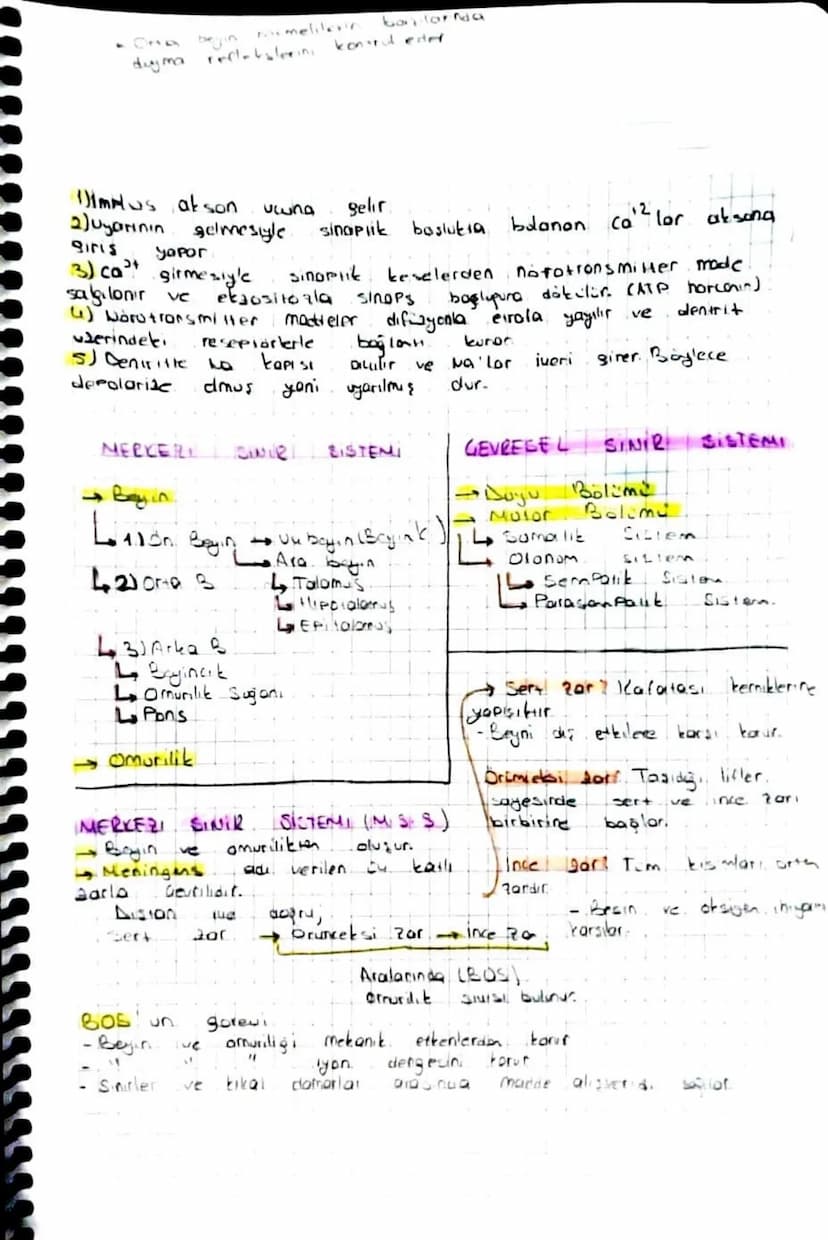 - Orta beyin memelilerin bazılarında
duyma reflekslerini kontrol eder
1) İmpuls akson ucuna gelir
2) Uyarının gelmesiyle sinaptik boşlukta bulunan Ca⁺² lar aksona
giriş yapar
3) Ca²⁺ girmesiyle sinaptik keselerden nörotransmitter madde
salgılanır ve ekzositozla sinaps boşluğuna dökülür. (ATP harcanır)
4) Nörotransmitter maddeler difüzyonla etrafa yayılır ve dentrit
üzerindeki reseptörlerle bağlantı kurar
5) Dentritte Na kapısı açılır ve Na'lar içeri girer. Böylece
depolarize olmuş yani uyarılmış dur.
MERKEZİ SİNİR SİSTEMİ
→ Beyin
↳ 1) Ön Beyin → Uç beyin (Beyin k )
↳ Ara beyin
↳ Talamus
↳ Hipotalamus
↳ Epitalamus
↳ 2) Orta B
↳ 3) Arka B
↳ Beyincik
↳ Omurilik Soğanı
↳ Pons
→ Omurilik
ÇEVRESEL SİNİR SİSTEMİ
→ Duyu Bölümü
→ Motor Bölümü
↳ Somatik Sistem
↳ Otonom sistem
↳ Sempatik Sistem
↳ Parasempatik Sistem.
→ Sert zar: Kafatası kemiklerine
yapışıktır
- Beyni dış etkilere karşı korur.
Örümceksi zar: Taşıdığı lifler
sayesinde sert ve ince zarı
birbirine bağlar.
İnce zar: Tüm kısımları örten
zardır
- Besin ve oksijen ihtiyacını
karşılar.
MERKEZİ SİNİR SİSTEMİ (M.S.S)
→ Beyin ve omurilikten oluşur.
→ Meninges adı verilen üç katlı
zarla çevrilidir.
Dıştan içe doğru;
Sert zar → Örümceksi zar → İnce zar
Aralarında (BOS)
omurilik sıvısı bulunur.
BOS'un görevi
- Beyin ve omuriliği mekanik etkenlerden korur
- " " " iyon dengesini korur
- Sinirler ve kılcal damarlar arasında madde alışverişi sağlar